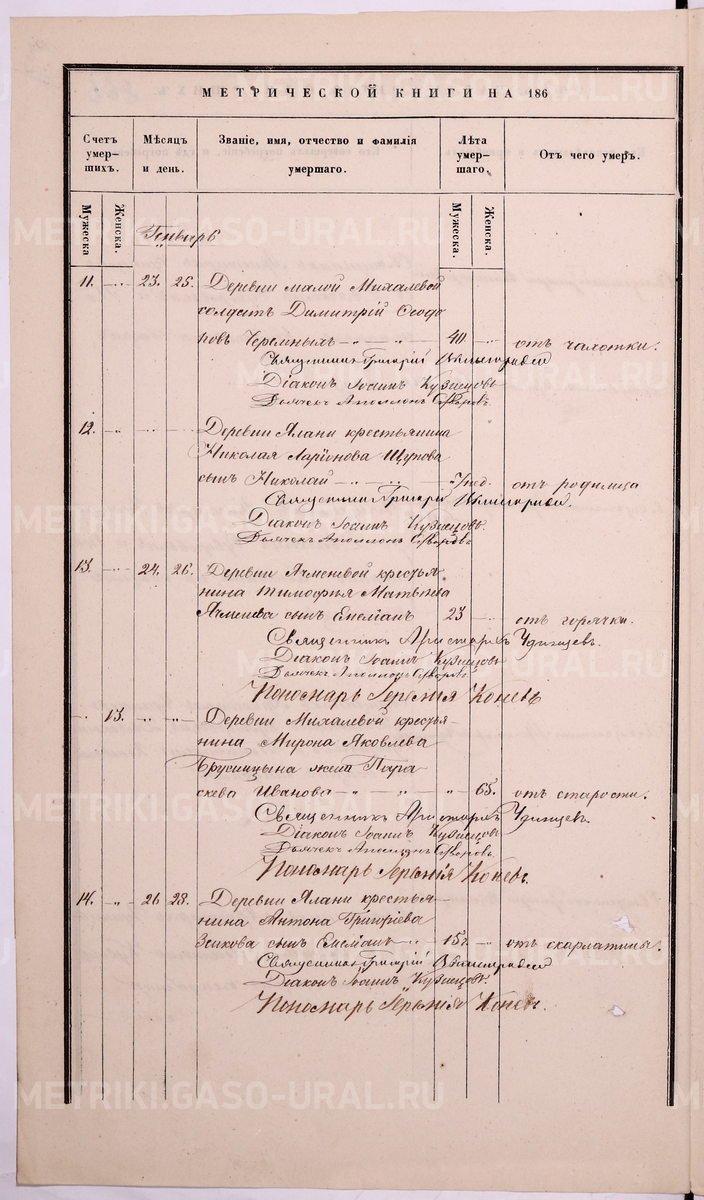 МЕТРИЧЕСКОЙ КНИГИ НА 186
Счетъ умер-шихъ. Мѣсяцъ и день. Званіе, имя, отчество и фамилія умершаго. Лѣта умер-шаго. Отъ чего умеръ.
Мужеска Женска. Мужеска. Женска.
Генварь
11. 23. 25. Деревни малой Михалевой
солдатъ Димитрій Ѳеодо
ровъ Черемныхъ 40 отъ чахотки.
Священникъ Григорій
Діаконъ Іоаннъ Кузнецовъ
Дьячекъ Аполлонъ
12. Деревни Ялани крестьянина
Николая Ларіонова
сынъ Николай отъ родимца
Священникъ Григорій
Діаконъ Іоаннъ Кузнецовъ.
Дьячекъ Аполлонъ
13. 24. 26. Деревни Ячменевой крестья
нина Тимофея Матвѣева
Ячменева сынъ 23 отъ горячки.
Священникъ Аристархъ Удинцев.
Діаконъ Іоаннъ Кузнецовъ
Дьячекъ Аполлонъ
Пономарь Коневъ
13. Деревни Михалевой крестья-
нина Мирона Яковлева
Брусницына жена Пара
скева Иванова 65. отъ старости.
Священникъ Аристархъ Удинцев.
Діаконъ Іоаннъ Кузнецовъ
Дьячекъ Аполлонъ
Пономарь Коневъ.
14. 26 28. Деревни Ялани крестья-
нина Антона Григорьева
Зыкова сынъ отъ скарлатины.
Священникъ Григорій
Діаконъ Іоаннъ Кузнецовъ.
Пономарь Коневъ.
METRIKI.GASO-URAL.RU